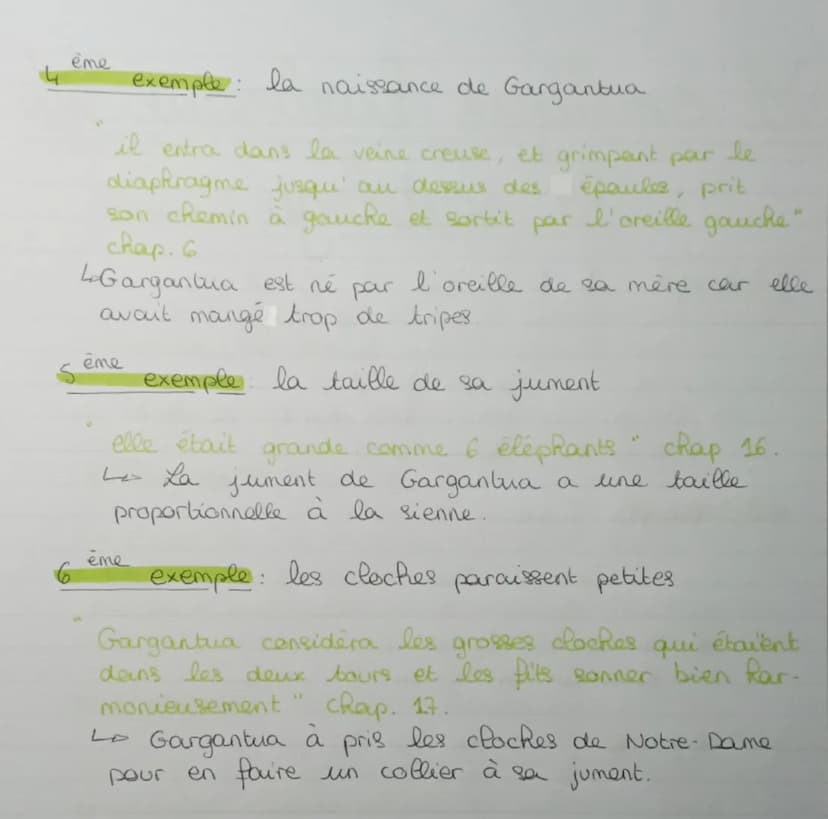 4ème exemple : la naissance de Gargantua
"il entra dans la veine creuse, et grimpant par le
diaphragme jusqu'au dessus des épaules, prit
son chemin à gauche et sortit par l'oreille gauche"
chap. 6
↳Gargantua est né par l'oreille de sa mère car elle
avait mangé trop de tripes
5ème exemple : la taille de sa jument
"elle était grande comme 6 éléphants" chap 16.
↳ La jument de Gargantua a une taille
proportionnelle à la sienne.
6ème exemple : les cloches paraissent petites
"Gargantua considéra les grosses cloches qui étaient
dans les deux tours et les fits sonner bien har-
monieusement" chap. 17.
↳ Gargantua à pris les cloches de Notre-Dame
pour en faire un collier à sa jument.